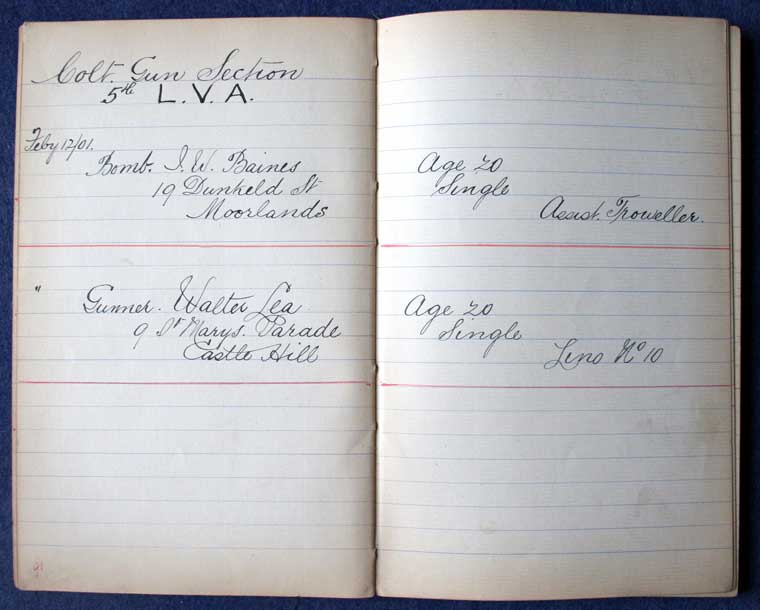 Colt. Gun Section
5th L.V.A.
Feby 12/01.
Bomb. I. W. Baines
19 Dunkeld St
Moorlands
Age 20
Single
Assist. Troweller.
" Gunner. Walter Lea
9 St Marys. Parade
Castle Hill
Age 20
Single
Leno No 10
91